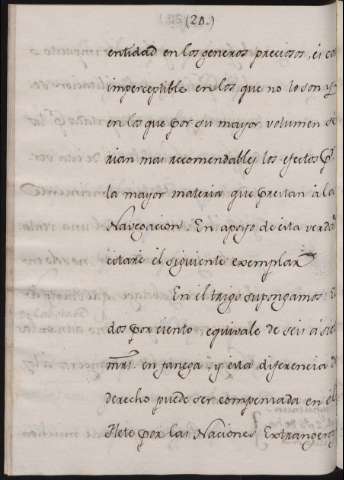 (20.)
entidad en los generos preciosos, es ca
imperceptible en los que no lo son, y
en los que por su mayor volumen se
rian mas recomendables los efectos pr.
la mayor materia que prestan à la
Navegacion. En apoyo de esta verdad
citaré el siguiente exemplar.
En el trigo supongamos
dos por ciento, equivale de seis à siete
mrs. en fanega, y esta diferencia de
derecho puede ser compensada en el
Flete por las Naciones Extrangeras